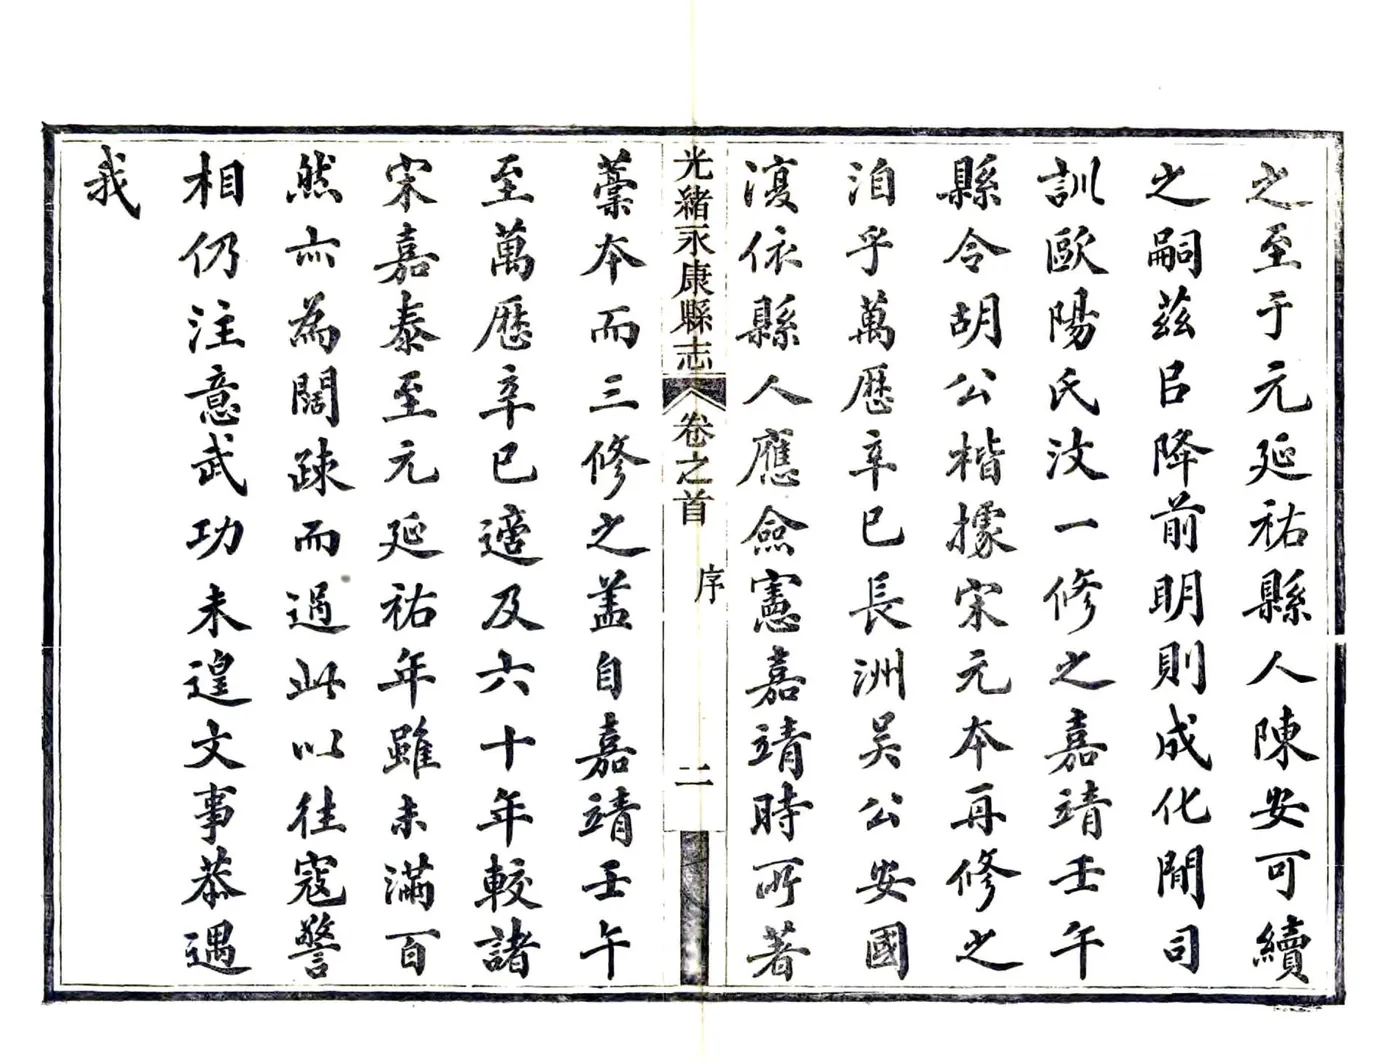 之至于元延祐縣人陳安可續
之嗣茲㠯降前明則成化閒司
訓歐陽氏汶一修之嘉靖壬午
縣令胡公楷據宋元本再修之
洎乎萬歷辛巳長洲吴公安國
復依縣人應僉憲嘉靖時所著
光緒永康縣志
卷之首
序
二
藁本而三修之盖自嘉靖壬午
至萬歷辛巳適及六十年較諸
宋嘉泰至元延祐年雖未滿百
然亦為闊疎而過此以往寇警
相仍注意武功未遑文事恭遇
我